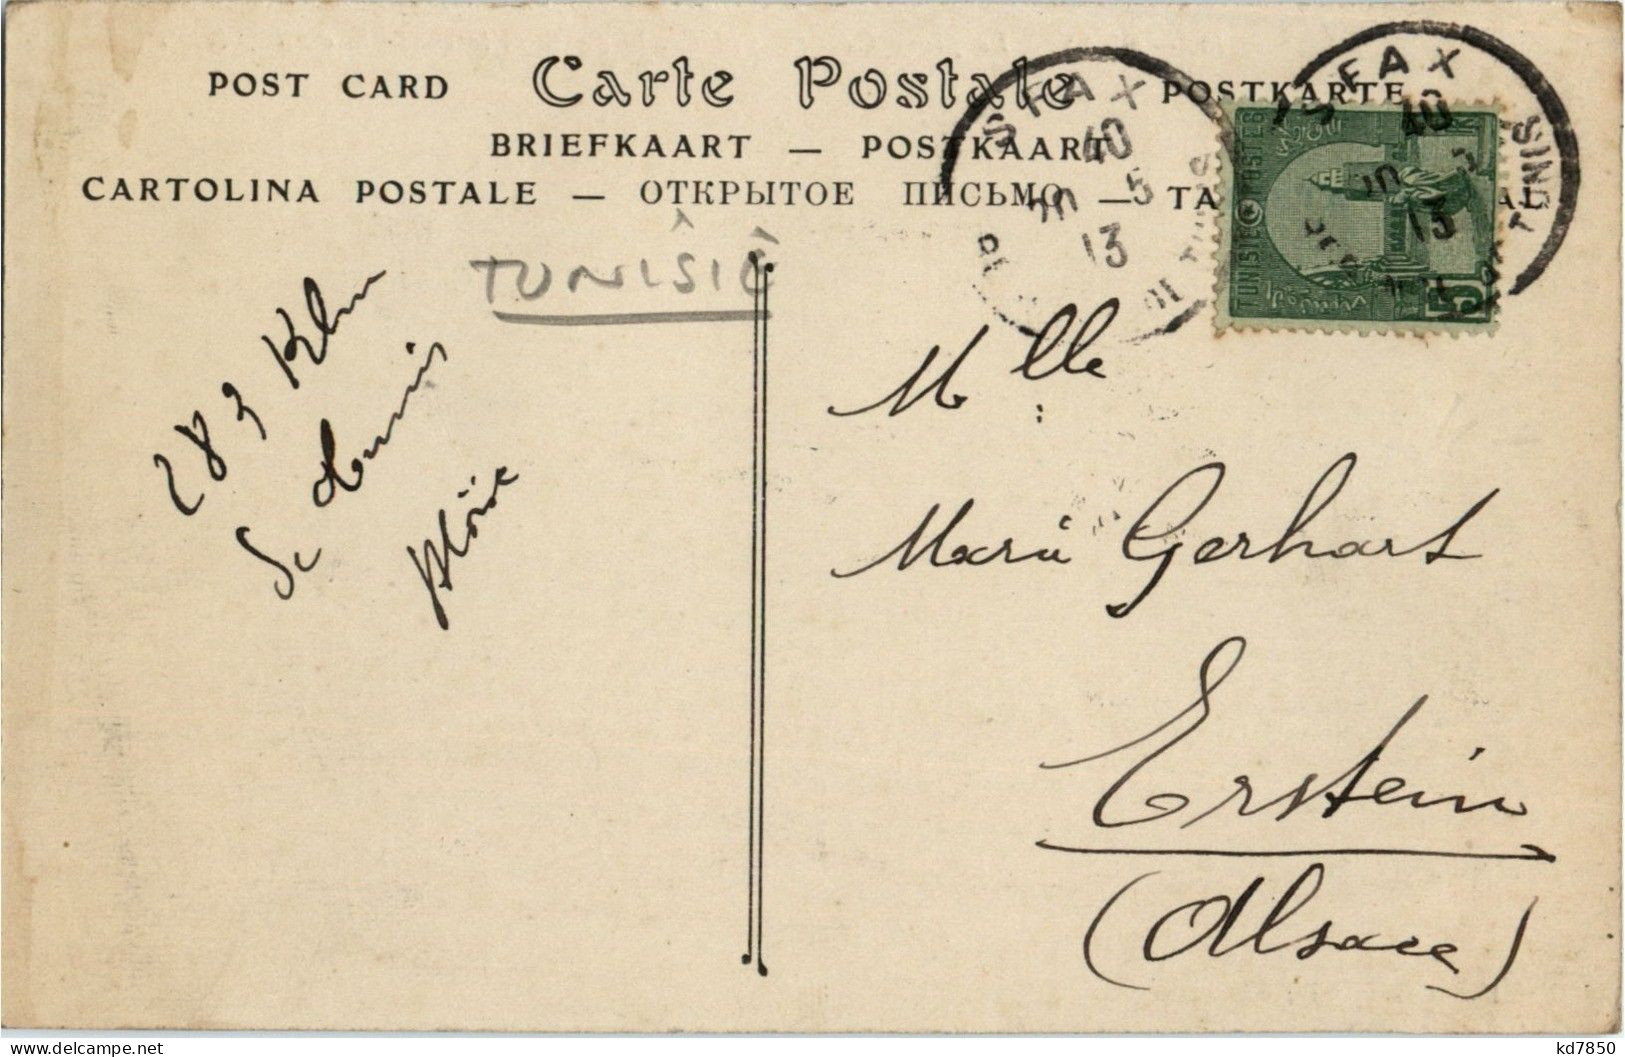 POST CARD Carte Postale POSTKARTE
BRIEFKAART — POSTKAART
CARTOLINA POSTALE — ОТКРЫТОЕ ПИСЬМО — TA AL
SFAX
40
20 5
13
SFAX
40
13
TUNIS
TUNISIE POSTES
5
TUNISIE
283 Klm
Mlle
Marie Gerhart
Erstein
(Alsace)
delcampe.net
kd7850